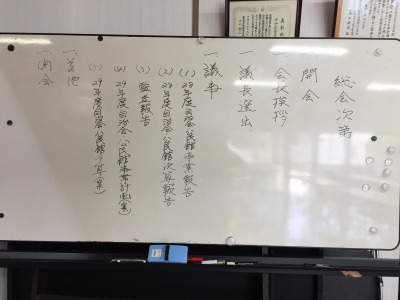 総会次第
開会
一 会長挨拶
一 議長選出
一 議事
(1) 28年度自治会公民館事業報告
(2) 28年度自治会公民館決算報告
(3) 監査報告
(4) 29年度自治会公民館事業計画(案)
(5) 29年度自治会公民館予算(案)
一 その他
一 閉会